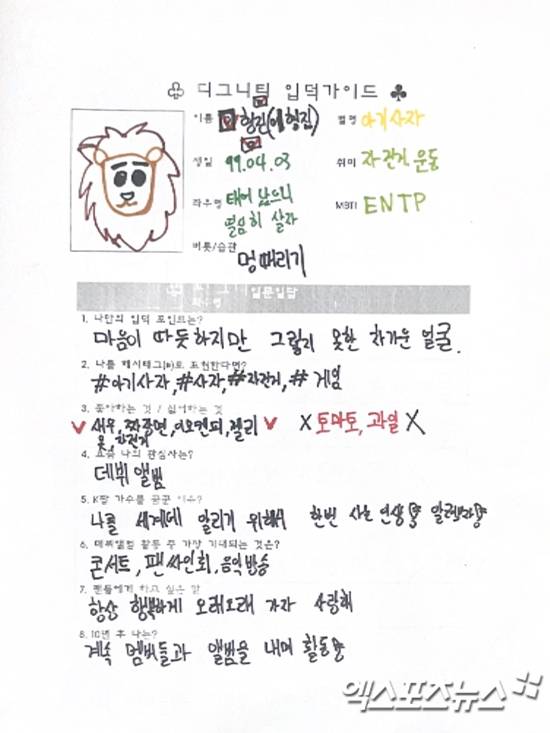 ♧ 디그니티 입덕가이드 ♣
이름 형진(이형진) 별명 아기사자
생일 99.04.03 취미 자전거, 운동
좌우명 태어났으니 MBTI ENTP
열심히 살자
버릇/습관 멍때리기
일문일답
1. 나만의 입덕 포인트는?
마음이 따듯하지만 그렇지 못한 차가운 얼굴.
2. 나를 해시태그(#)로 표현한다면?
#아기사자, #사자, #자전거, #게임
3. 좋아하는 것 / 싫어하는 것
새우, 짜장면, 젤리 X 토마토, 과일 X
옷, 자전거
4. 요즘 나의 관심사는?
데뷔 앨범
5. K팝 가수를 꿈꾼 이유?
나를 세계에 알리기 위해서 한번 사는 인생
6. 데뷔앨범 활동 중 가장 기대되는 것은?
콘서트, 팬싸인회, 음악방송
7. 팬들에게 하고 싶은 말
항상 행복하게 오래오래 가자 사랑해
8. 10년 후 나는?
계속 멤버들과 앨범을 내며 활동
엑스포츠뉴스